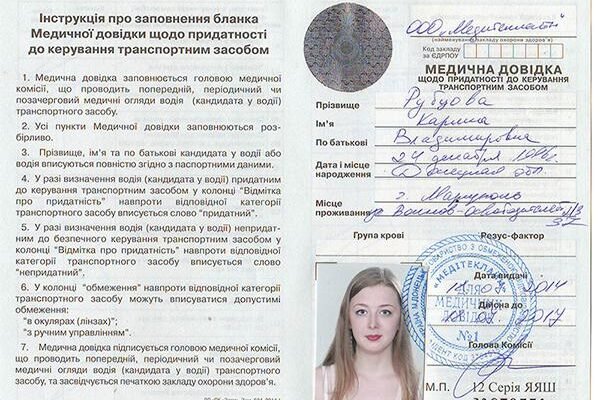 Інструкція про заповнення бланка
Медичної довідки щодо придатності
до керування транспортним засобом
1. Медична довідка заповнюється головою медичної
комісії, що проводить попередній, періодичний чи
позачерговий медичні огляди водія (кандидата у водії)
транспортного засобу.
2. Усі пункти Медичної довідки заповнюються роз-
бірливо.
3. Прізвище, ім'я та по батькові кандидата у водії або
водія вписуються повністю згідно з паспортними даними.
4. У разі визначення водія (кандидата у водії) придатним
до керування транспортним засобом у колонці "Відмітка
про придатність" навпроти відповідної категорії
транспортного засобу вписується слово "придатний".
5. У разі визначення водія (кандидата у водії) непридат-
ним до безпечного керування транспортним засобом у
колонці "Відмітка про придатність" навпроти відповідної
категорії транспортного засобу вписується слово
"непридатний".
6. У колонці "обмеження" навпроти відповідної категорії
транспортного засобу можуть вписуватися допустимі
обмеження:
"в окулярах (лінзах)";
"з ручним управлінням".
7. Медична довідка підписується головою медичної комісії,
що проводить попередній, періодичний чи позачерговий
медичні огляди водія (кандидата у водії) транспортного
засобу, та засвідчується печаткою закладу охорони здоров'я.
ООО
(найменування закладу охорони здоров'я)
Код закладу
за ЄДРПОУ
МЕДИЧНА ДОВІДКА
ЩОДО ПРИДАТНОСТІ ДО КЕРУВАННЯ
ТРАНСПОРТНИМ ЗАСОБОМ
Прізвище Рубцова
Ім'я Карина
По батькові Владимировна
Дата і місце 24 декабря
народження Донецкая обл
г. Мариуполь
Місце
проживання
Група крові Резус-фактор
Дата видачі
2014
Дійсна до
2017
Голова Комісії
"МЕДІТЕКЛАЙН"
МЕДИЧНА
ДОВІДКА
№1
М.П. 12 Серія ЯЯШ